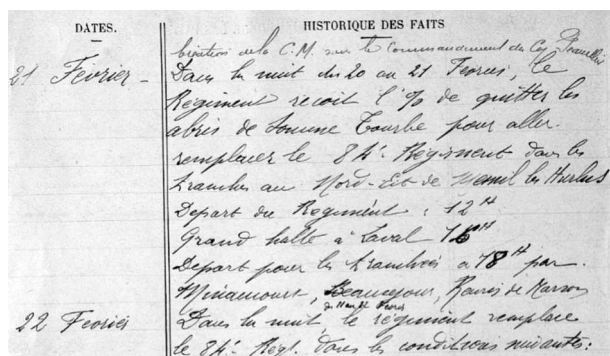 DATES. HISTORIQUE DES FAITS
de la C.M. sur le Commandement du
21 Février - Dans la nuit du 20 au 21 Février, le
Régiment reçoit l'% de quitter les
abris de Somme Tourbe pour aller
remplacer le 84e Régiment dans les
tranchées au Nord-Est de Mesnil les Hurlus
Départ du Régiment : 12H
Grand halte à Laval 16H
Départ pour les tranchées à 18H par
Minaucourt, Beauséjour, de Marson
22 Février Dans la nuit, le régiment remplace
le 84e Régt. dans les conditions suivantes: